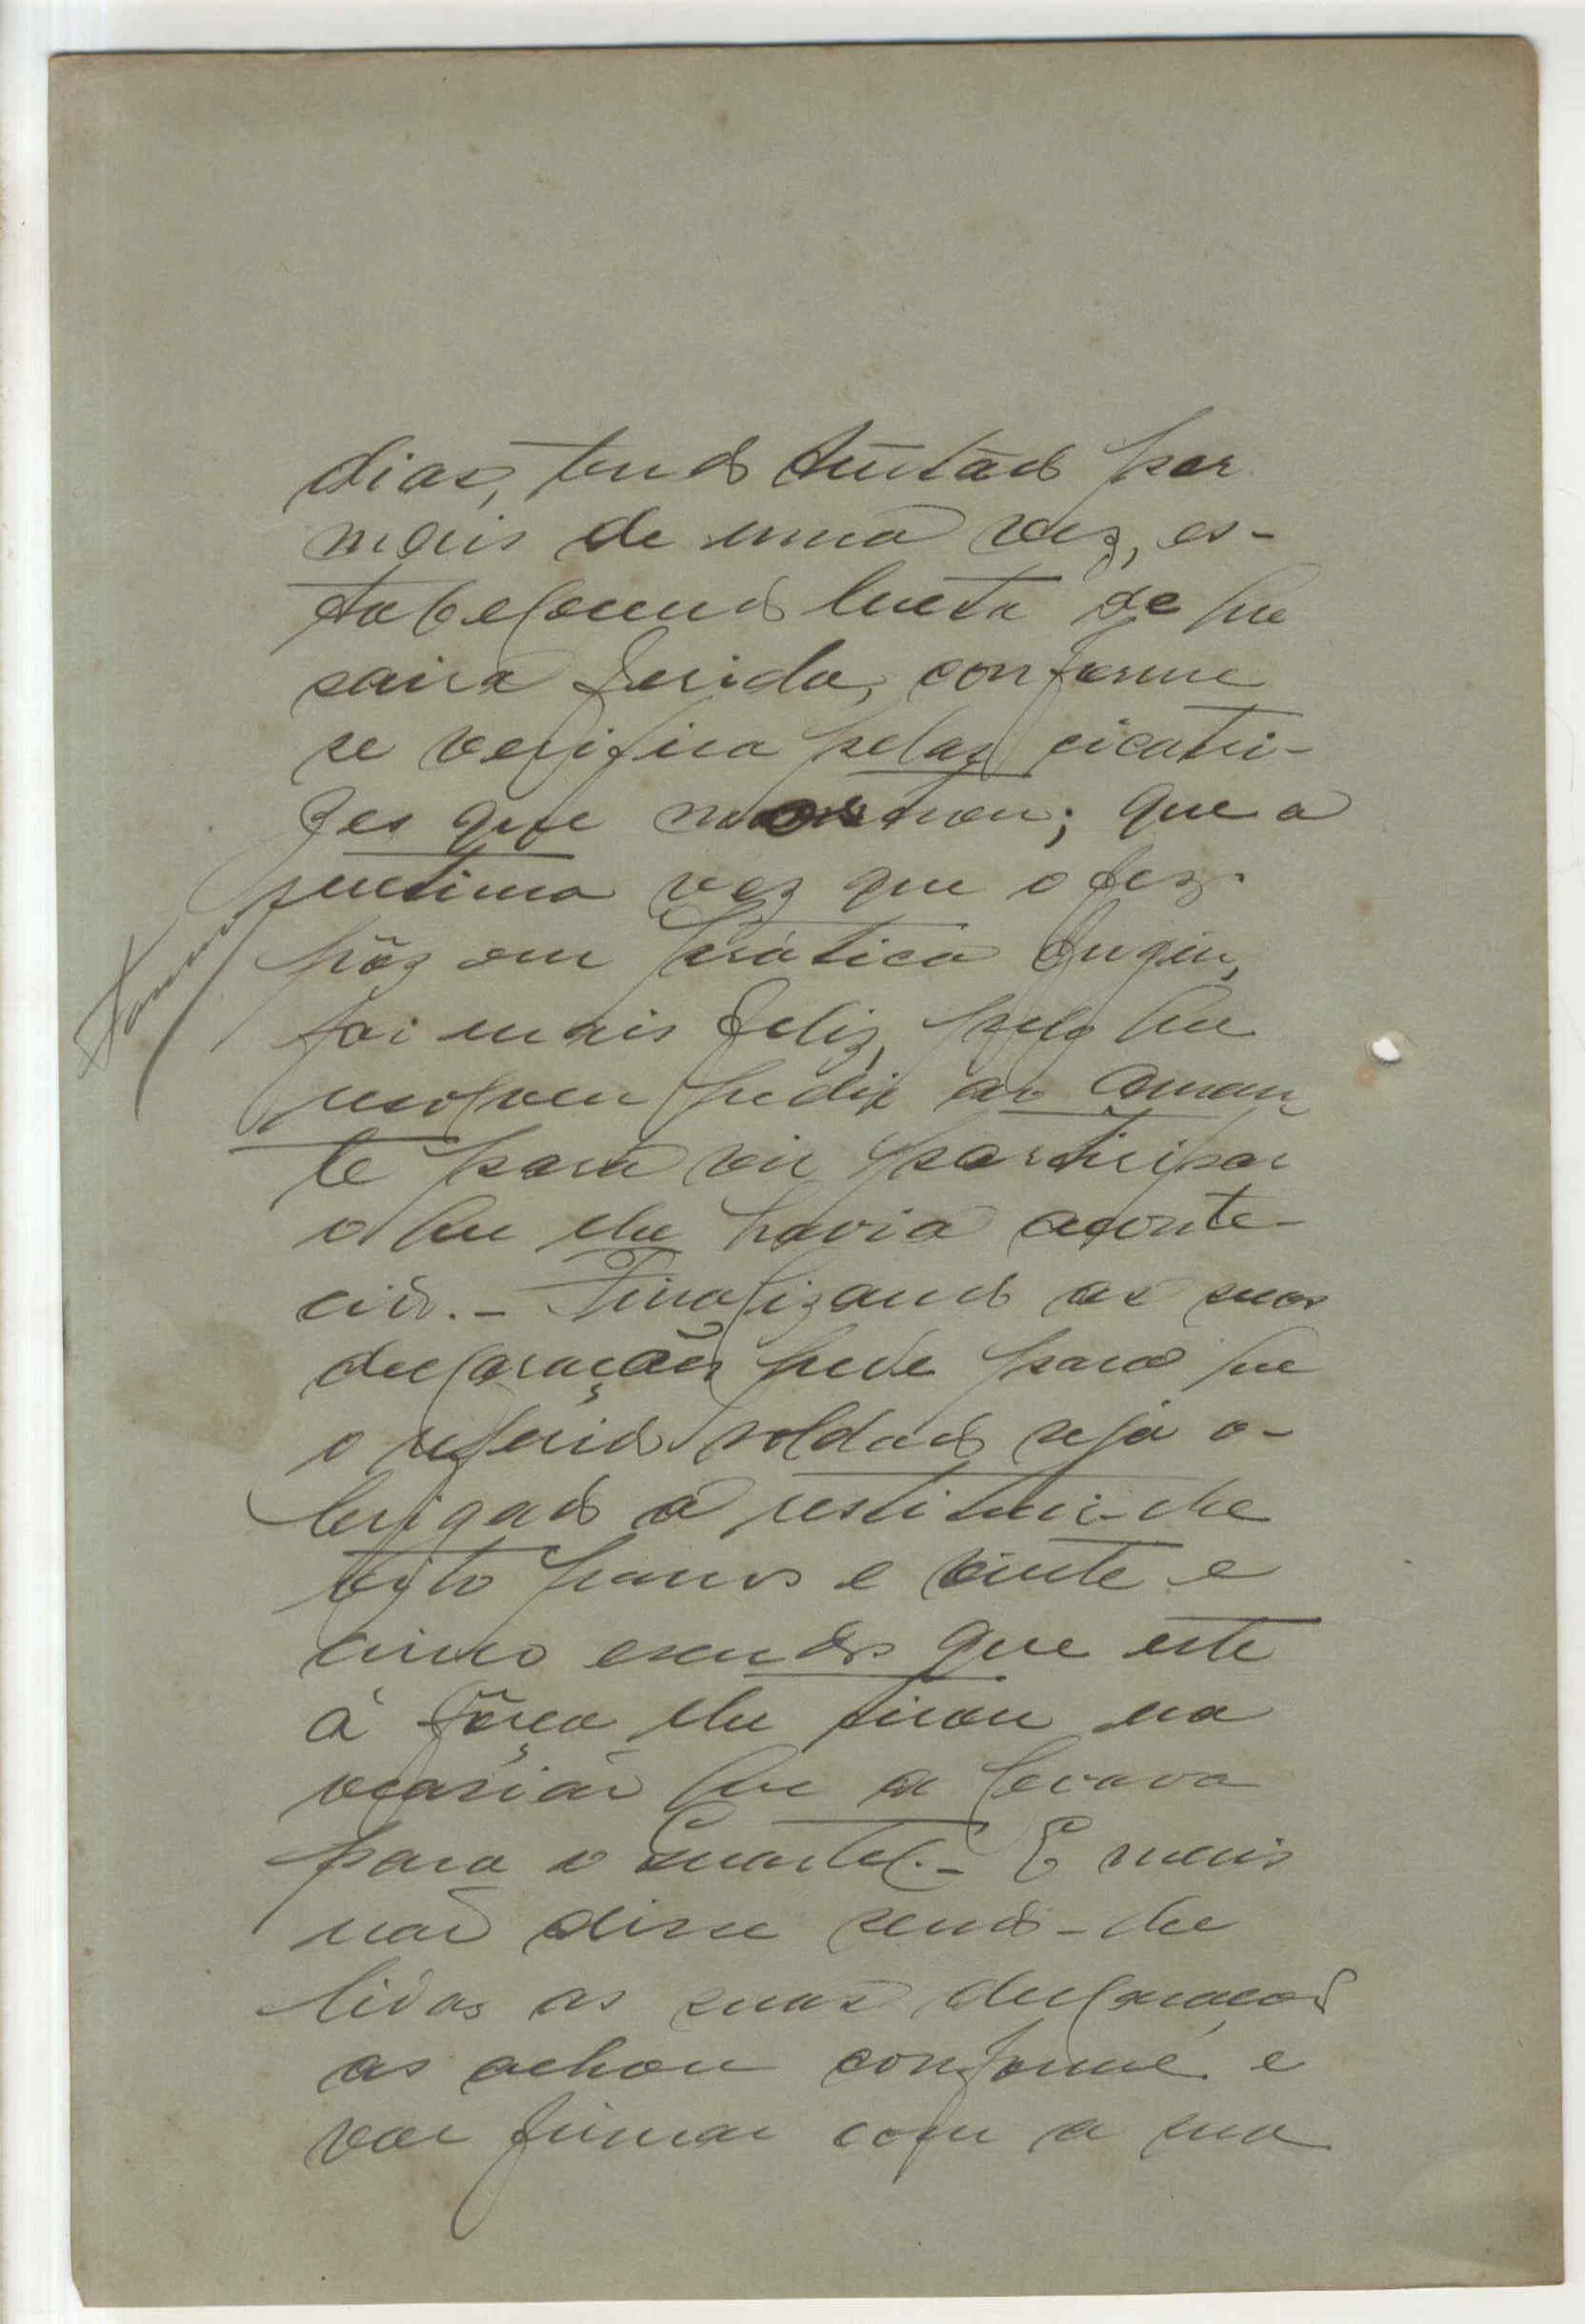 dias, tendo tentado por
mais de uma vez, es-
tabelecendo lucta de que
saira ferida, conforme
se verifica pelas cicatri-
zes que mostrou; que a
ultima vez que o fez
pôz em prática fugir,
foi mais feliz, pelo que
resolveu pedir ao aman
te para vir participar
o que lhe havia aconte-
cido. - Finalizando as suas
declarações pede para que
o referido soldado seja o-
brigado a restituir-lhe
oito panos e vinte e
cinco escudos que este
á fôrça lhe tirou na
ocasião que a levava
para o Quartel. - E mais
não disse sendo-lhe
lidas as suas declarações
as achou conforme e
vai firmar com a sua